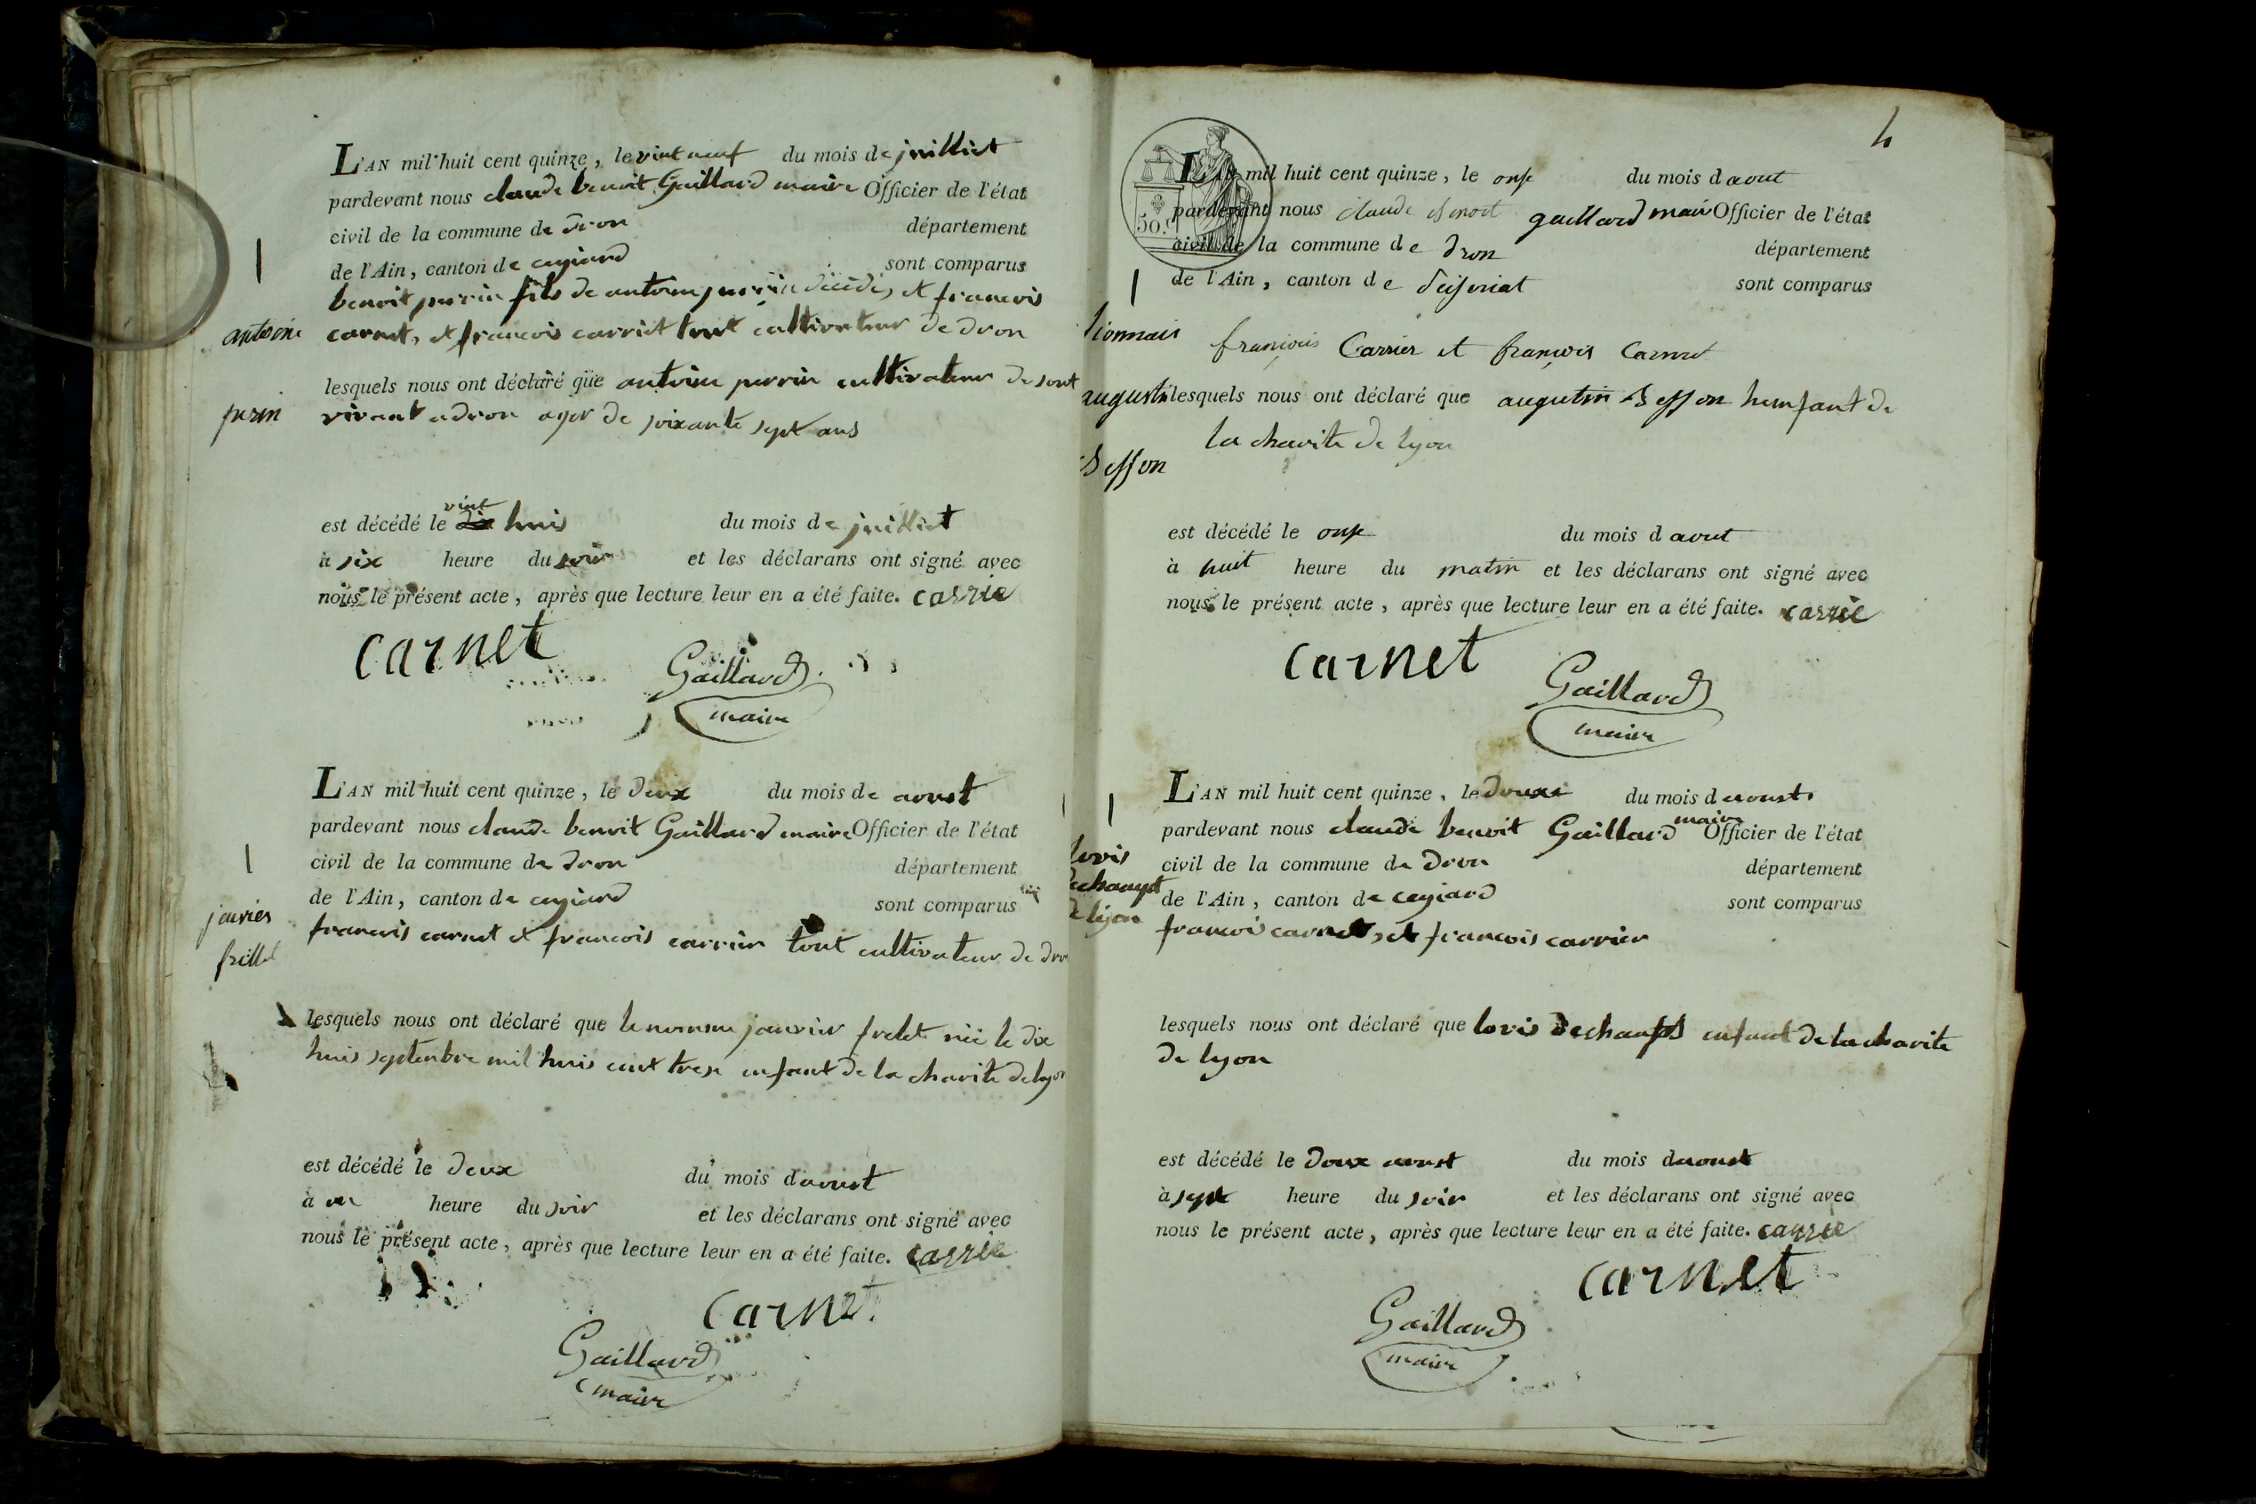 L'AN mil huit cent quinze, le vint neuf du mois de juilliet
pardevant nous claude benoit Gaillard maire Officier de l'état
civil de la commune de dron département
de l'Ain, canton de ceyziard sont comparus
benoit perrin fils de antoine perrin décédé, et francois
carnet, et francois carriet tout cultivateur de dron
antoine
lesquels nous ont déclaré que antoine perrin cultivateur de sont
vivent a dron agor de soixante sept ans
perin
est décédé le vint huis du mois de juilliet
à six heure du soir et les déclarans ont signé avec
nous le présent acte, après que lecture leur en a été faite. carrie
carnet
Gaillard
maire
L'AN mil huit cent quinze, le deux du mois de aoust
pardevant nous claude benoit Gaillard maire Officier de l'état
civil de la commune de dron département
de l'Ain, canton de ceyziard sont comparus
janvier
frillet
francois carnet et francois carrier tout cultivateur de dron
lesquels nous ont déclaré que le nomme janvier frelet née le dix
huis septenbre mil huis cent trese enfant de la charite de lyon
est décédé le deux du mois daoust
à heure du soir et les déclarans ont signé avec
nous le présent acte, après que lecture leur en a été faite. carrie
carnet
Gaillard
maire
4
50.c
L'AN mil huit cent quinze, le onse du mois d aout
pardevant nous claude benoit gaillard mair Officier de l'état
civil de la commune de dron département
de l'Ain, canton de sont comparus
françois Carrier et françois Carnet
augustin
Besson
lesquels nous ont déclaré que augutin Besson henfant de
la charite de lyon
est décédé le onse du mois d aout
à huit heure du matin et les déclarans ont signé avec
nous le présent acte, après que lecture leur en a été faite. carrie
carnet
Gaillard
maire
L'AN mil huit cent quinze, le douxe du mois d aoust
pardevant nous claude benoit Gaillard maire Officier de l'état
civil de la commune de dron département
de l'Ain, canton de ceyziard sont comparus
lovis
dechampt
de lyon
francois carnet, et francois carrier
lesquels nous ont déclaré que lovis dechamps enfant de la charite
de lyon
est décédé le doux aoust du mois daoust
à sept heure du soir et les déclarans ont signé avec
nous le présent acte, après que lecture leur en a été faite. carrie
carnet
Gaillard
maire